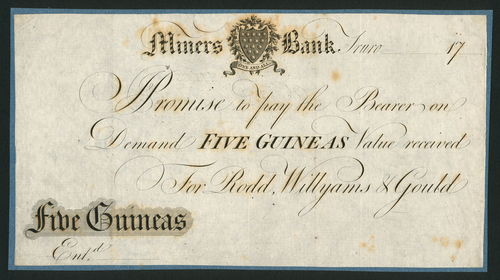 Miners Bank, Truro 17
ONE AND ALL
I Promise to pay the Bearer on
Demand FIVE GUINEAS Value received
For Rodd, Willyams & Gould
Five Guineas
Ent.d